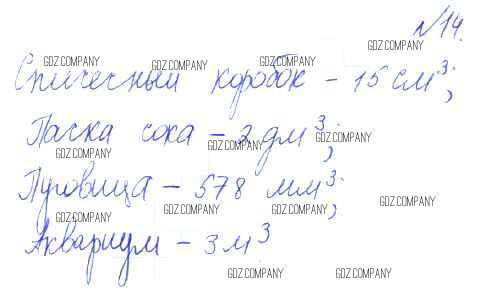 №14.
Спичечный коробок – 15 см³;
Пачка сока – 2 дм³;
Пуговица – 578 мм³;
Аквариум – 3 м³
GDZ.COMPANY
GDZ.COMPANY GDZ.COMPANY GDZ.COMPANY
GDZ.COMPANY
GDZ.COMPANY GDZ.COMPANY
GDZ.COMPANY
GDZ.COMPANY GDZ.COMPANY GDZ.COMPANY GDZ.COMPANY
GDZ.COMPANY GDZ.COMPANY